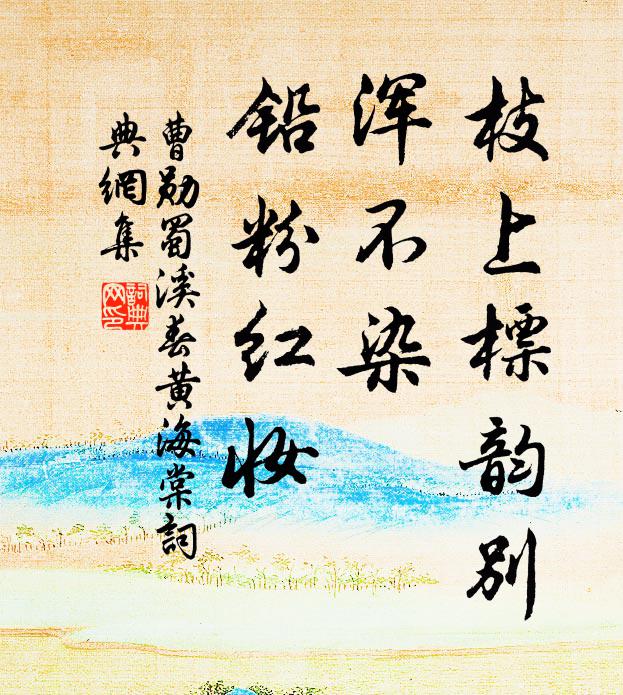 枝上標韵别
浑不染
铅粉红妆
曹勋蜀溪春黄海棠詞
典網集
詞典网印